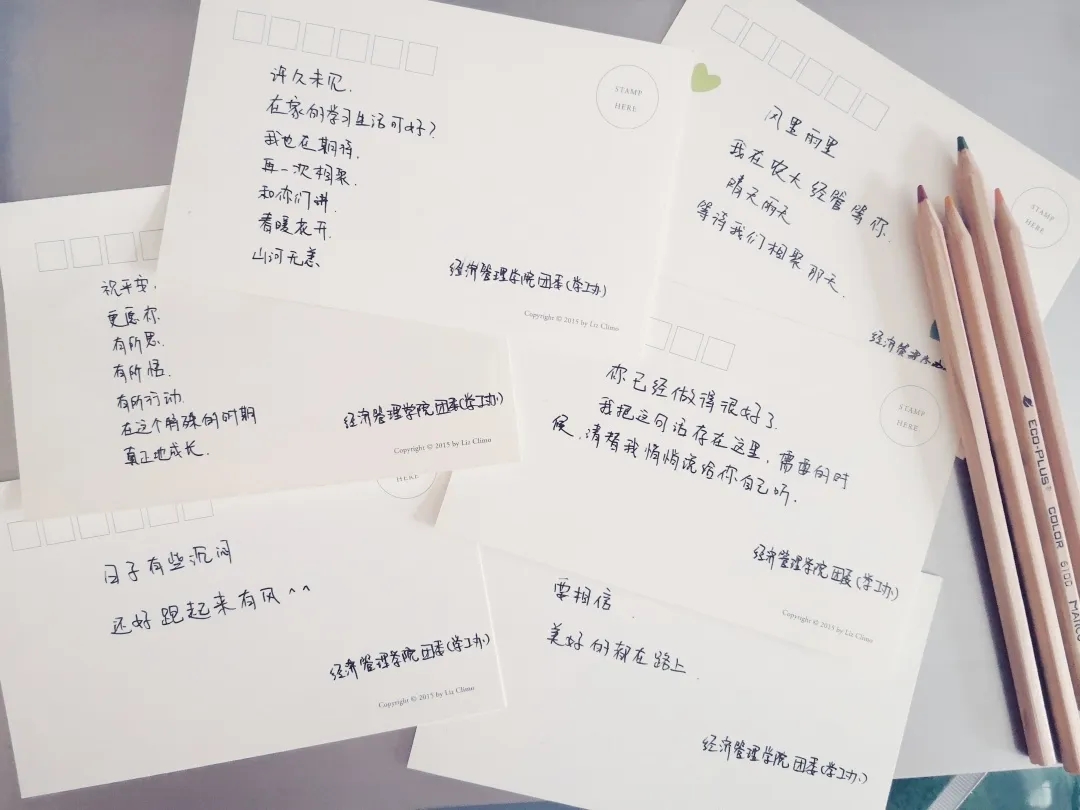 许久未见.
在家的学习生活可好?
我也在期待.
再一次相聚.
和你们讲.
春暖花开.
山河无恙
经济管理学院团委(学工办)
Copyright © 2015 by Liz Climo
STAMP
HERE
风里雨里
我在农大经管等你.
晴天雨天
等待我们相聚那天.
经济管
STAMP
HERE
祝平安.
更愿你.
有所思.
有所悟.
有所行动.
在这个特殊的时期
真正地成长.
经济管理学院团委(学工办)
Copyright © 2015 by Liz Climo
你已经做得很好了.
我把这句话存在这里,需要的时
候,请替我悄悄说给你自己听.
经济管理学院团委(学工办)
Copyright © 2015 by Liz Climo
STAMP
HERE
日子有些沉闷
还好跑起来有风^^
经济管理学院团委(学工办)
Copyright © 2015 by Liz Climo
HERE
要相信
美好的都在路上.
经济管理学院团委(学工办)
ECO-PLUS
COLOR
6100
MARCO